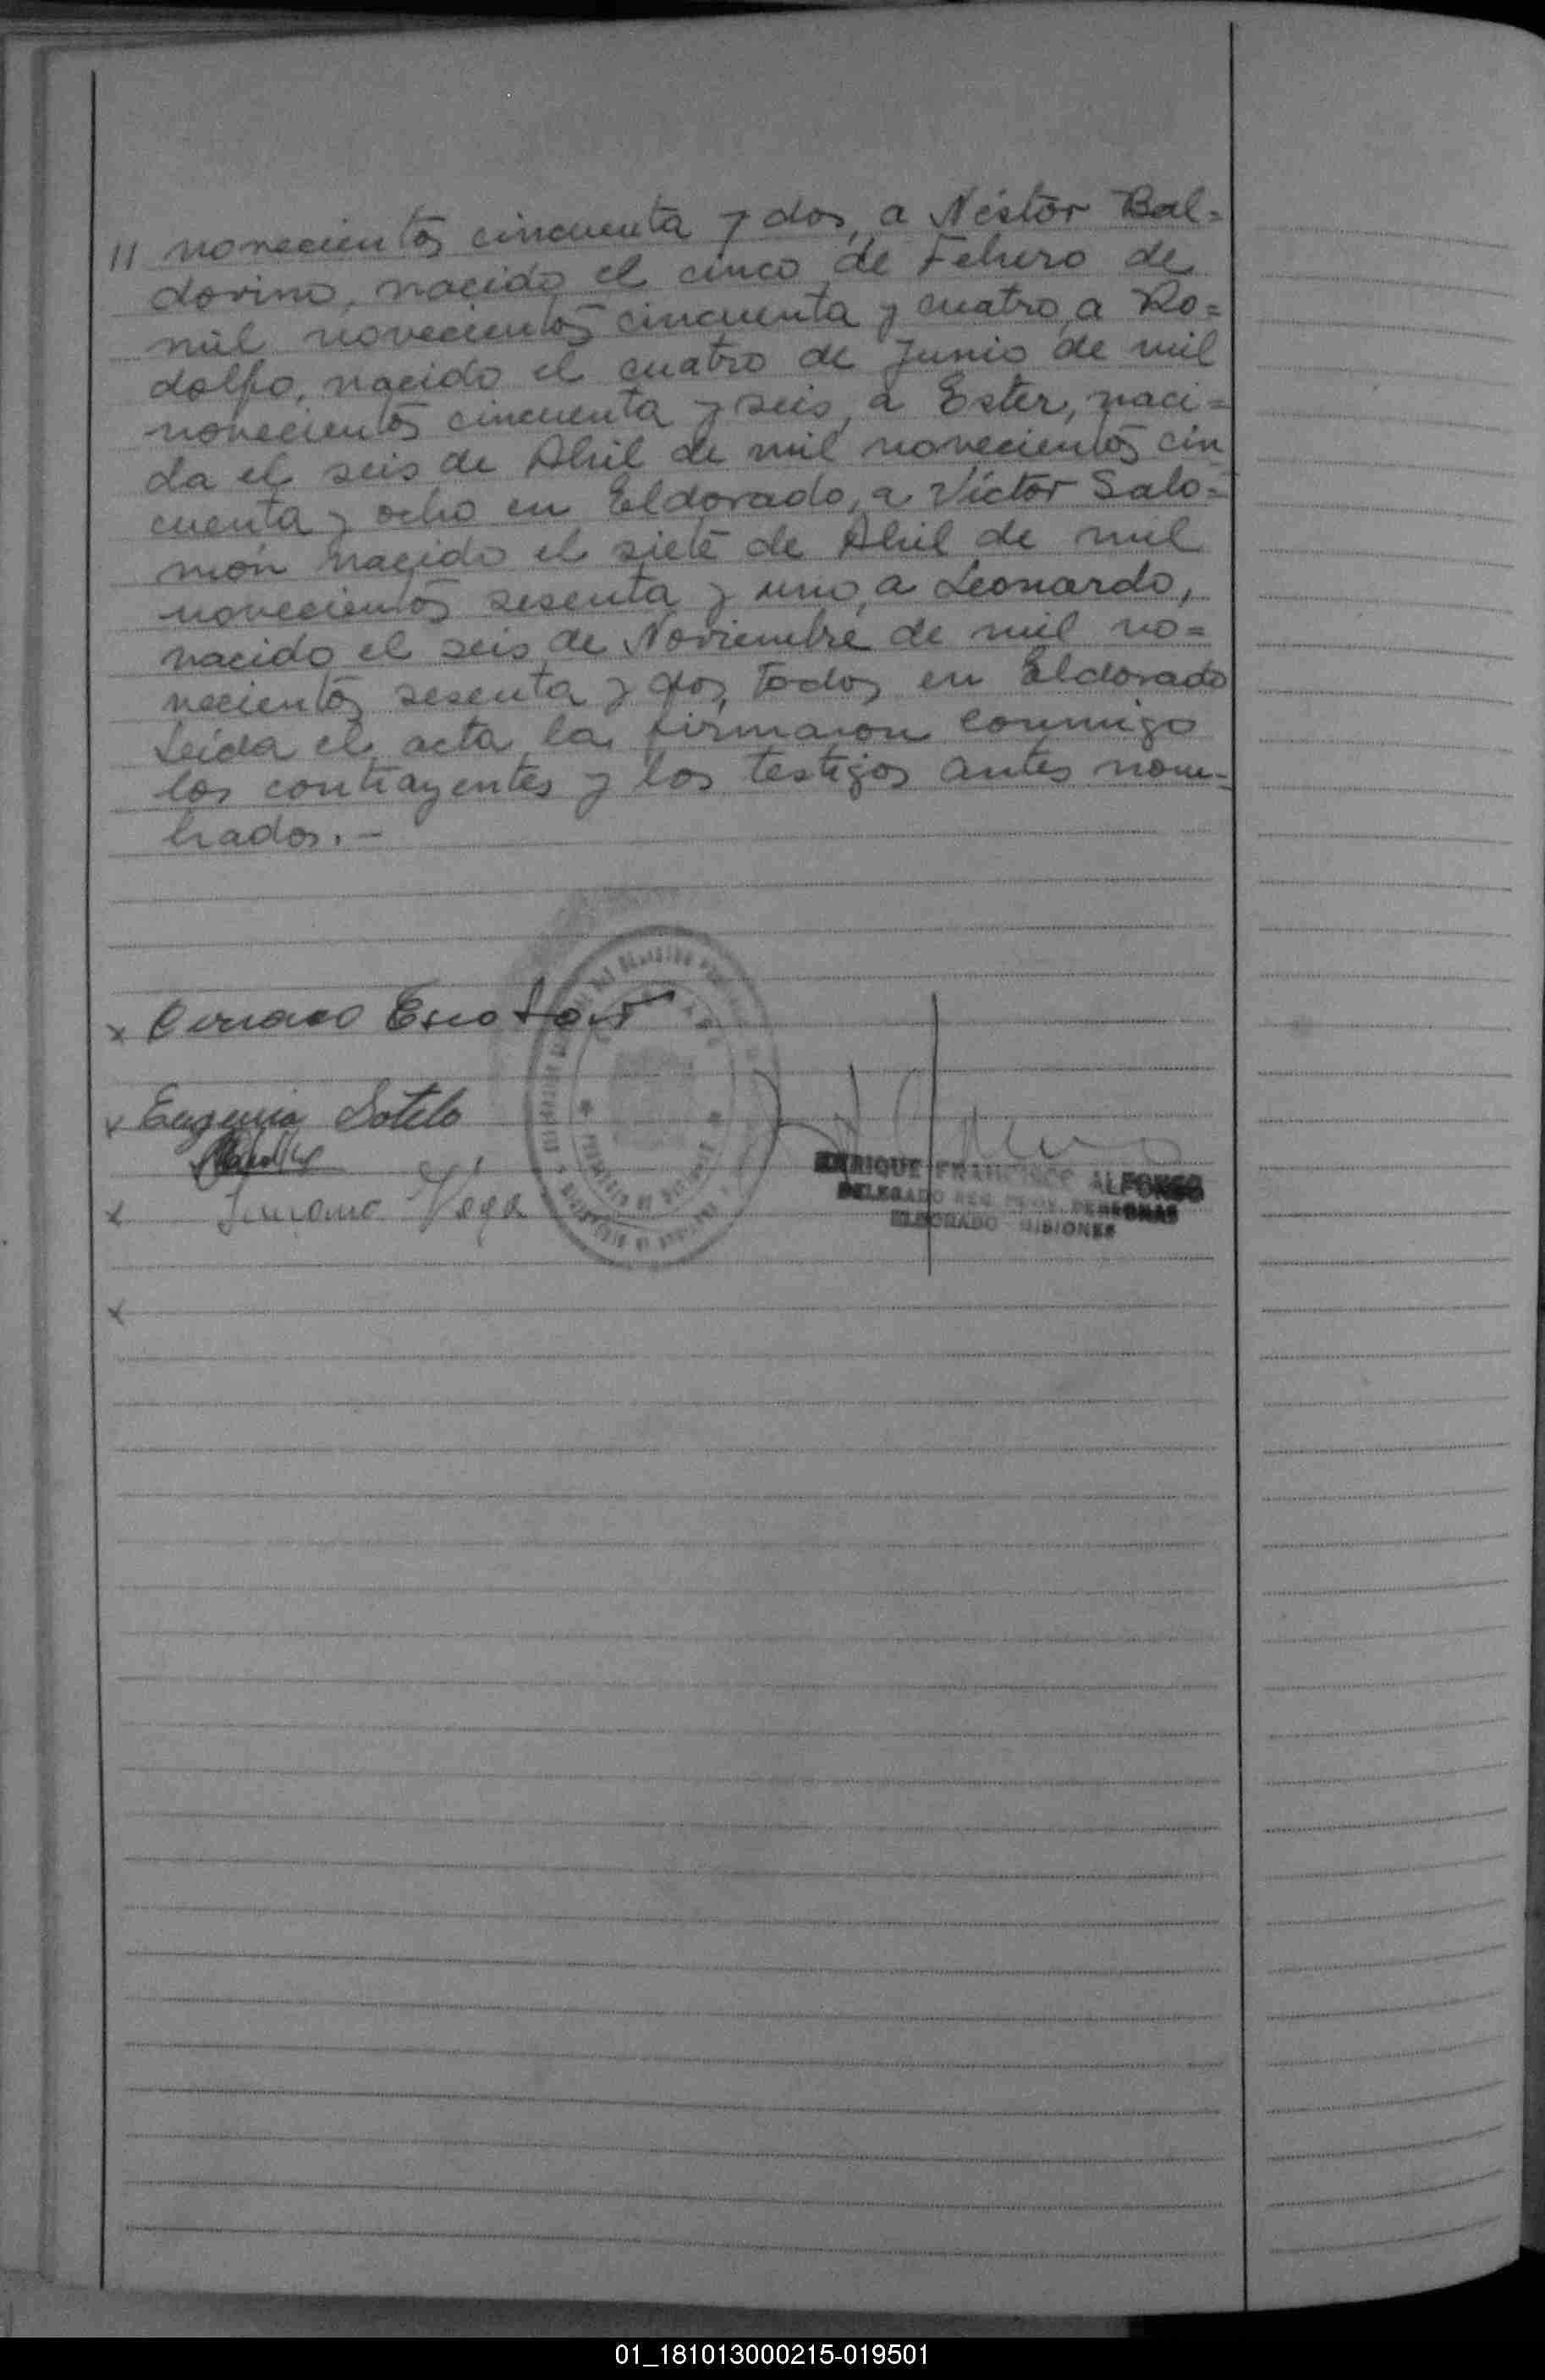 11 novecientos cincuenta y dos, a Néstor Bal=
dovino, nacido el cinco de Febrero de
mil novecientos cincuenta y cuatro, a Ro=
dolfo, nacido el cuatro de Junio de mil
novecientos cincuenta y seis, a Ester, naci=
da el seis de Abril de mil novecientos cin
cuenta y ocho en Eldorado, a Víctor Salo=
món nacido el siete de Abril de mil
novecientos sesenta y uno, a Leonardo,
nacido el seis de Noviembre de mil no=
vecientos sesenta y dos, todos en Eldorado
Leída el acta la firmaron conmigo
los contrayentes y los testigos antes nom-
brados.-
x
x Eugenia Sotelo
x Vega
ENRIQUE FRANCISCO ALFONSO
DELEGADO REG. PROV. PERSONAS
ELDORADO MISIONES
x
01_181013000215-019501